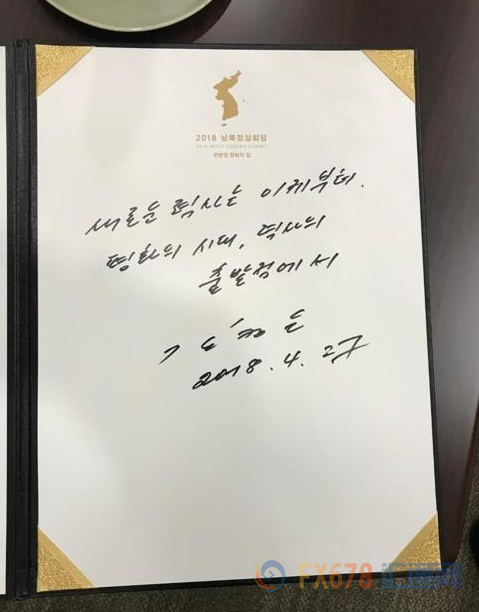 2018 남북정상회담
2018 INTER-KOREAN SUMMIT
판문점 평화의 집
새로운 력사는 이제부터.
평화의 시대, 력사의
출발점에서
김정은
2018. 4. 27
FX678 汇通网